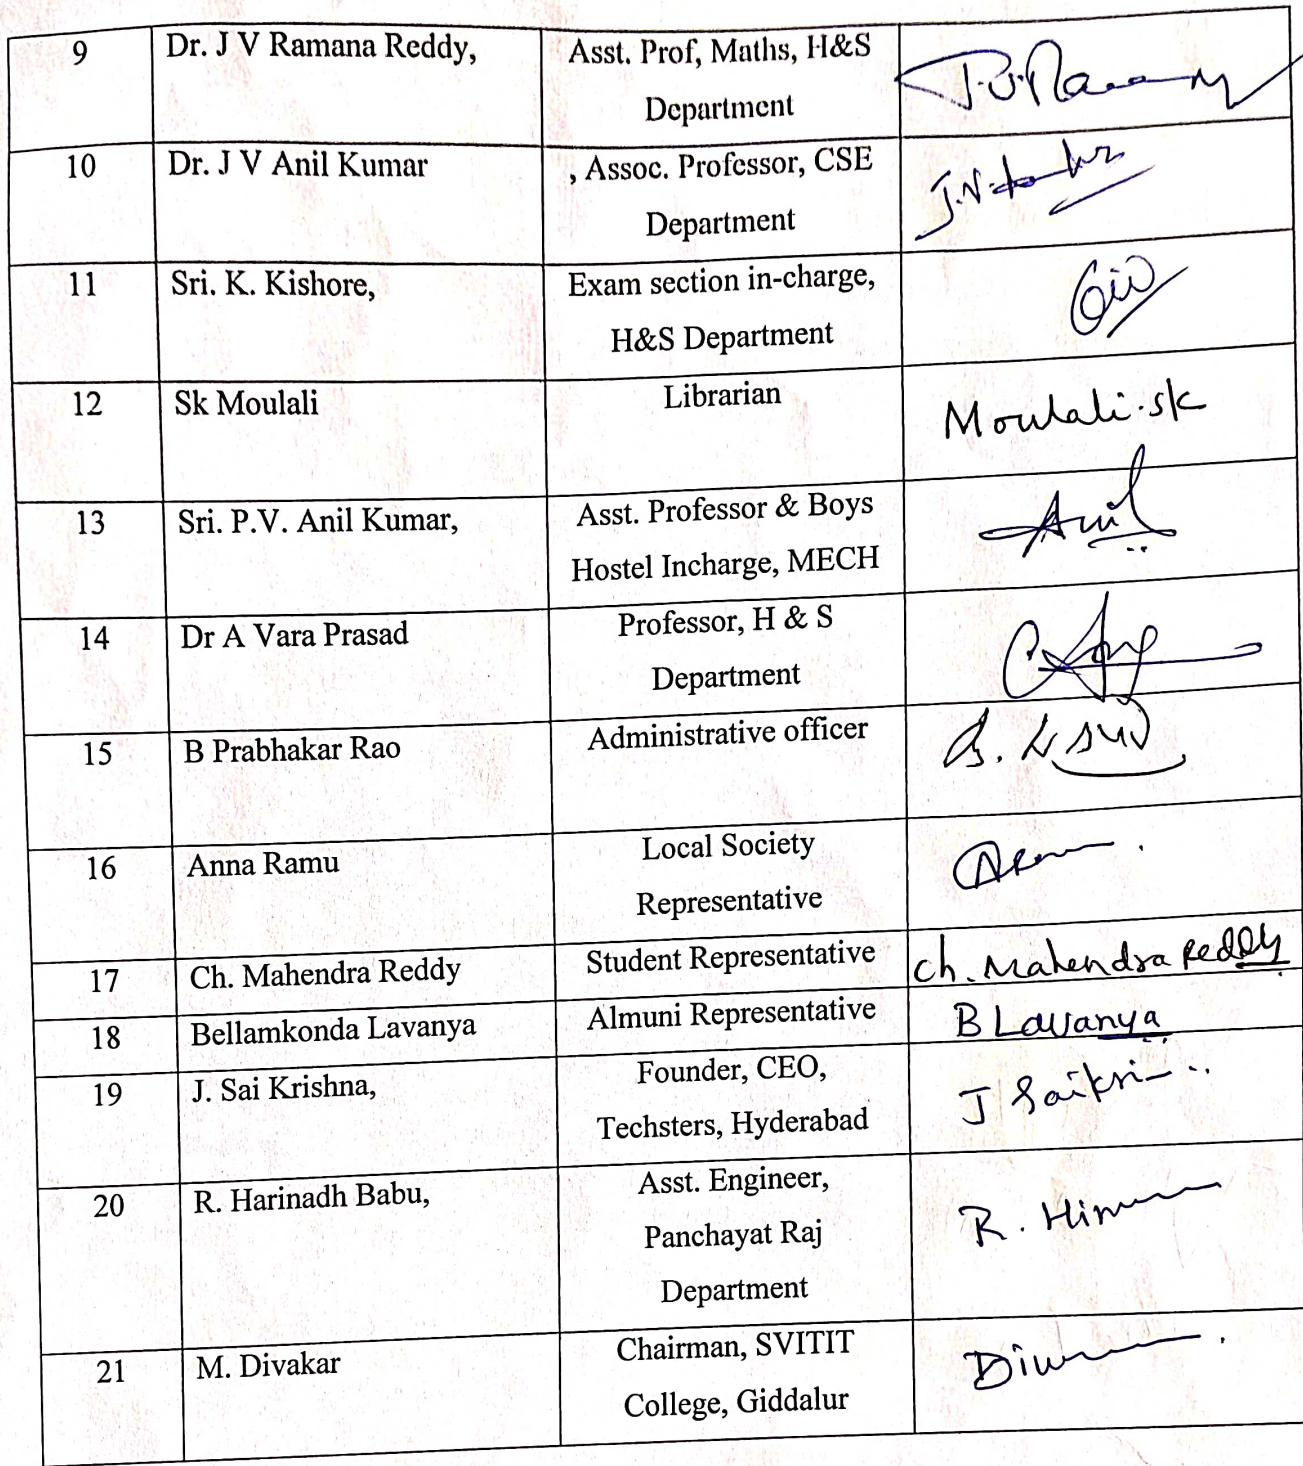 9 Dr. J V Ramana Reddy, Asst. Prof, Maths, H&S
Department
10 Dr. J V Anil Kumar , Assoc. Professor, CSE
Department
11 Sri. K. Kishore, Exam section in-charge,
H&S Department
12 Sk Moulali Librarian
Moulali.sk
13 Sri. P.V. Anil Kumar, Asst. Professor & Boys
Anil
Hostel Incharge, MECH
14 Dr A Vara Prasad Professor, H & S
Department
15 B Prabhakar Rao Administrative officer
16 Anna Ramu Local Society
Representative
17 Ch. Mahendra Reddy Student Representative Ch. Mahendra Reddy
18 Bellamkonda Lavanya Almuni Representative B Lavanya
19 J. Sai Krishna, Founder, CEO,
Techsters, Hyderabad
20 R. Harinadh Babu, Asst. Engineer,
Panchayat Raj
Department
21 M. Divakar Chairman, SVITIT
College, Giddalur